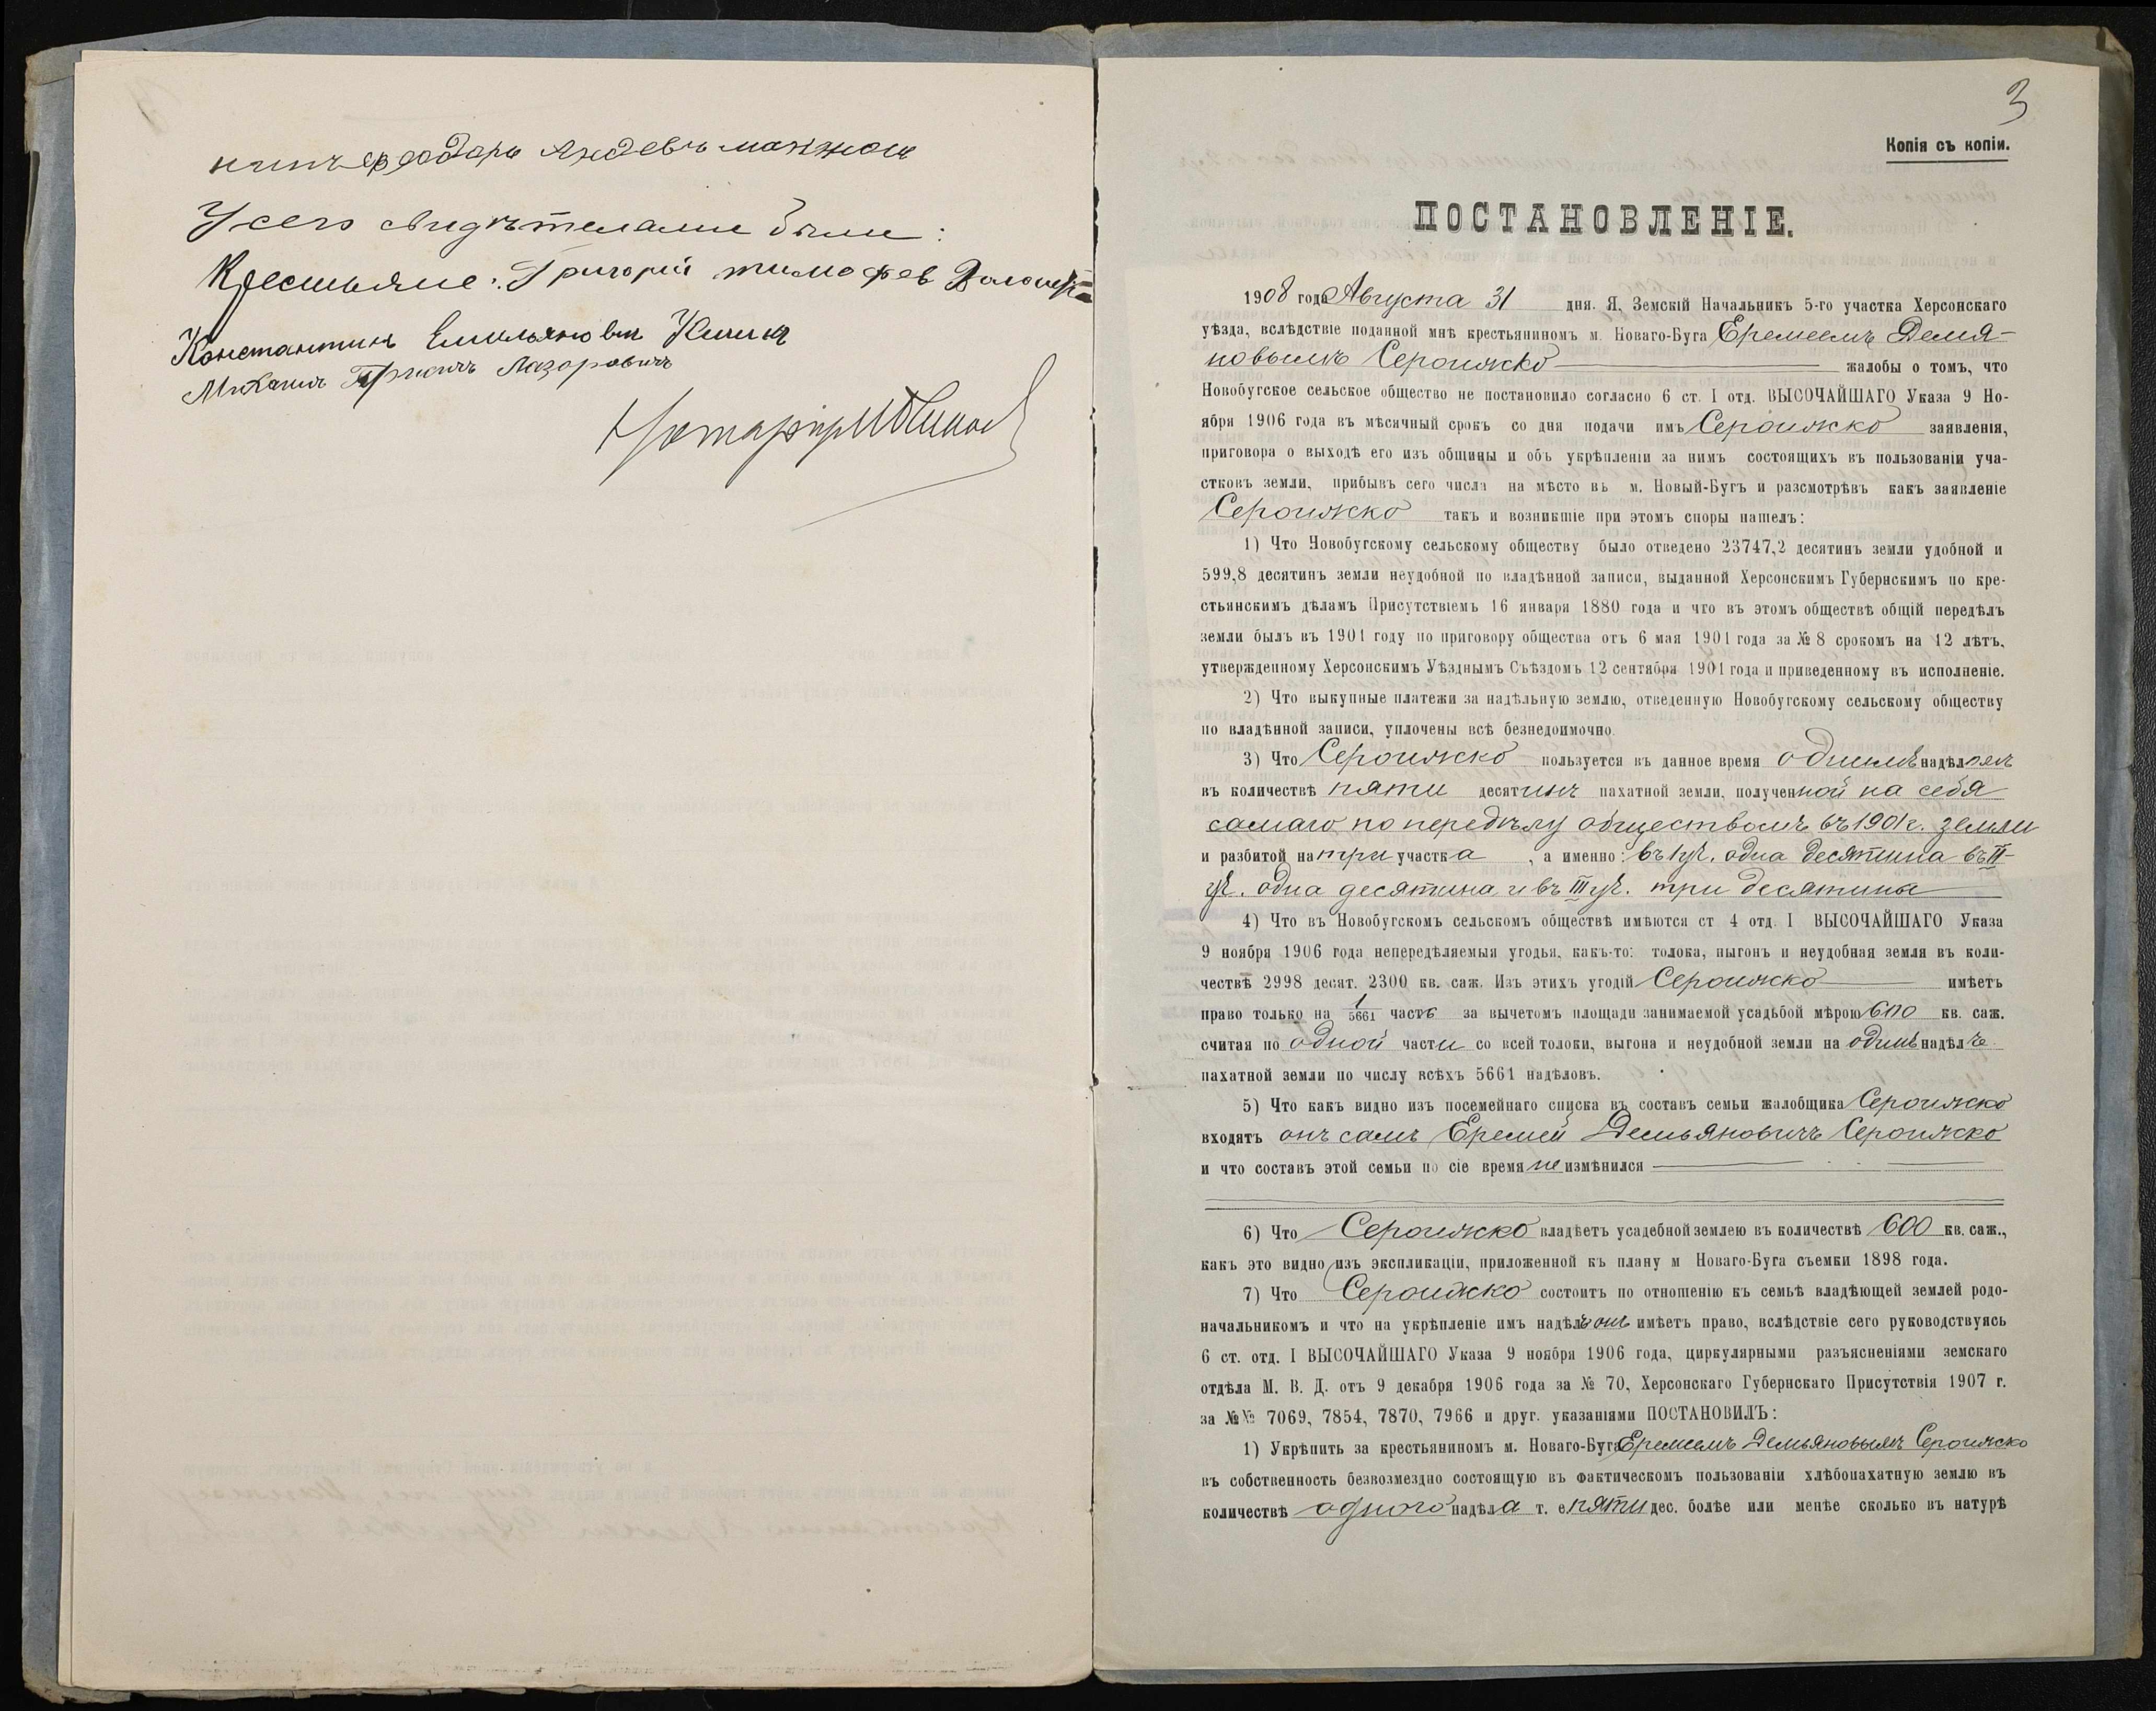 У сего свидѣтелями были:
Крестьяне: Григорій тимофеев
Константинъ Емильяновъ
Михаилъ Лазоровичъ
Нотаріусъ
3
Копія съ копіи.
ПОСТАНОВЛЕНІЕ.
1908 года Августа 31 дня. Я, Земскій Начальникъ 5-го участка Херсонскаго
уѣзда, вслѣдствіе поданной мнѣ крестьяниномъ м. Новаго-Буга Еремеемъ Демя-
новымъ Сероижко жалобы о томъ, что
Новобугское сельское общество не постановило согласно 6 ст. I отд. ВЫСОЧАЙШАГО Указа 9 Но-
ября 1906 года въ мѣсячный срокъ со дня подачи имъ Сероижко заявленія,
приговора о выходѣ его изъ общины и объ укрѣпленіи за нимъ состоящихъ въ пользованіи уча-
стковъ земли, прибывъ сего числа на мѣсто въ м. Новый-Бугъ и разсмотрѣвъ какъ заявленіе
Сероижко такъ и возникшіе при этомъ споры нашелъ:
1) Что Новобугскому сельскому обществу было отведено 23747,2 десятинъ земли удобной и
599,8 десятинъ земли неудобной по владѣнной записи, выданной Херсонскимъ Губернскимъ по кре-
стьянскимъ дѣламъ Присутствіемъ 16 января 1880 года и что въ этомъ обществѣ общій передѣлъ
земли былъ въ 1901 году по приговору общества отъ 6 мая 1901 года за № 8 срокомъ на 12 лѣтъ,
утвержденному Херсонскимъ Уѣзднымъ Съѣздомъ 12 сентября 1901 года и приведенному въ исполненіе.
2) Что выкупные платежи за надѣльную землю, отведенную Новобугскому сельскому обществу
по владѣнной записи, уплочены всѣ безнедоимочно.
3) Что Сероижко пользуется въ данное время однимъ надѣломъ
въ количествѣ пяти десятинъ пахатной земли, полученной на себя
самаго по передѣлу обществомъ въ 1901 г. земли
и разбитой на три участка, а именно: въ I уч. одна десятина въ II-
уч. одна десятина и въ III уч. три десятины
4) Что въ Новобугскомъ сельскомъ обществѣ имѣются ст 4 отд. I ВЫСОЧАЙШАГО Указа
9 ноября 1906 года непередѣляемыя угодья, какъ-то: толока, выгонъ и неудобная земля въ коли-
чествѣ 2998 десят. 2300 кв. саж. Изъ этихъ угодій Сероижко имѣетъ
право только на 1/5661 часть за вычетомъ площади занимаемой усадьбой мѣрою 600 кв. саж.
считая по одной части со всей толоки, выгона и неудобной земли на одинъ надѣлъ
пахатной земли по числу всѣхъ 5661 надѣловъ.
5) Что какъ видно изъ посемейнаго списка въ составъ семьи жалобщика Сероижко
входятъ онъ самъ Еремей Демьяновичъ Сероижко
и что составъ этой семьи по сіе время не измѣнился
6) Что Сероижко владѣетъ усадебной землею въ количествѣ 600 кв. саж.,
какъ это видно изъ экспликаціи, приложенной къ плану м Новаго-Буга съемки 1898 года.
7) Что Сероижко состоитъ по отношенію къ семьѣ владѣющей землей родо-
начальникомъ и что на укрѣпленіе имъ надѣлъ онъ имѣетъ право, вслѣдствіе сего руководствуясь
6 ст. отд. I ВЫСОЧАЙШАГО Указа 9 ноября 1906 года, циркулярными разъясненіями земскаго
отдѣла М. В. Д. отъ 9 декабря 1906 года за № 70, Херсонскаго Губернскаго Присутствія 1907 г.
за №№ 7069, 7854, 7870, 7966 и друг. указаніями ПОСТАНОВИЛЪ:
1) Укрѣпить за крестьяниномъ м. Новаго-Буга Еремеемъ Демьяновымъ Сероижко
въ собственность безвозмездно состоящую въ фактическомъ пользованіи хлѣбопахатную землю въ
количествѣ одного надѣла т. е пяти дес. болѣе или менѣе сколько въ натурѣ